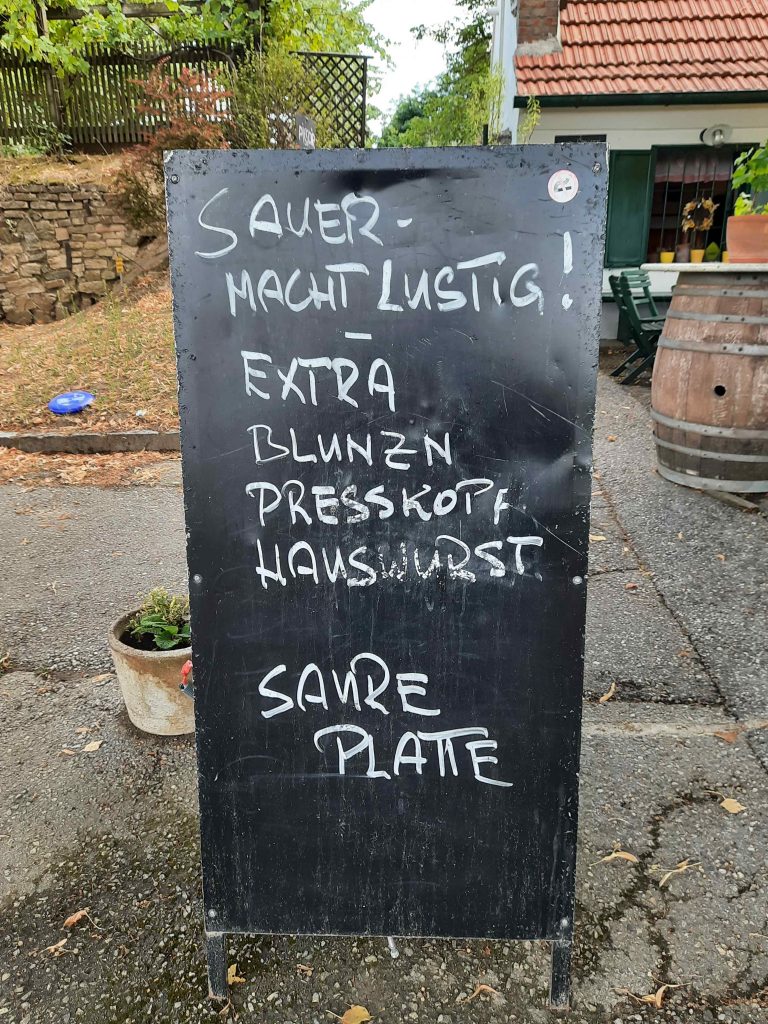 SAUER-
MACHT LUSTIG!
-
EXTRA
BLUNZN
PRESSKOPF
HAUSWURST
SAURE
PLATTE